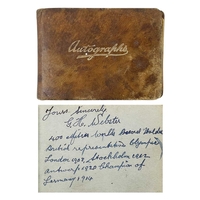 Autographs
Yours Sincerely
G. H. Webster
400 metres World Record Holder
British representative Olympics
London 1908, Stockholm 1912
Antwerp 1920 Champion of
Germany 1914.